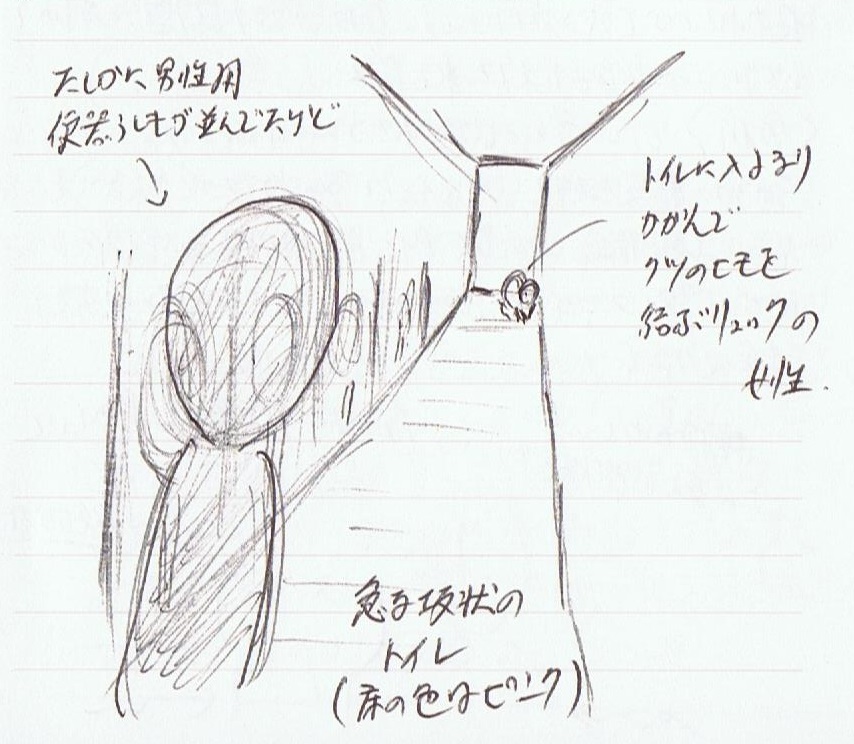 たしかに男性用
便器らしきが並んでたけど
トイレに入るなり
かがんで
クツのヒモを
結ぶリュックの
女性.
急な坂状の
トイレ
(床の色はピンク)